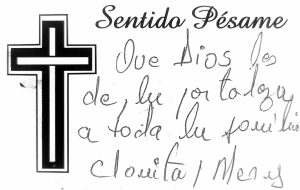 Sentido Pésame
Que Dios les
de, la fortaleza,
a toda la famili
Clarita, Mery